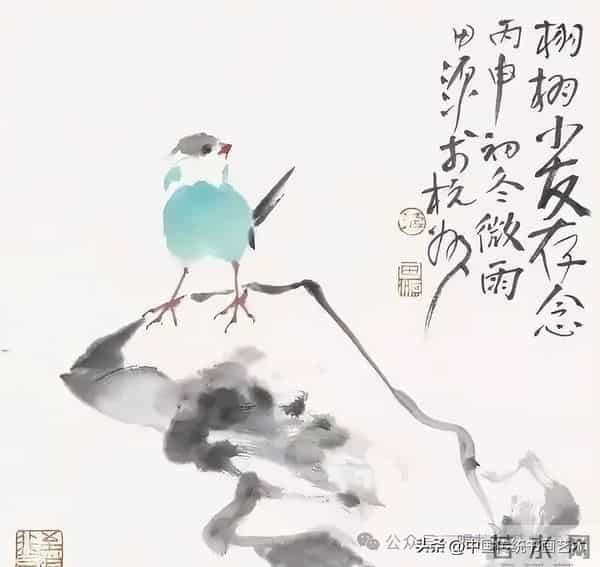 栩栩小友存念
丙申初冬微雨
田源于杭州
公众号
头条 @中国传统书画艺术